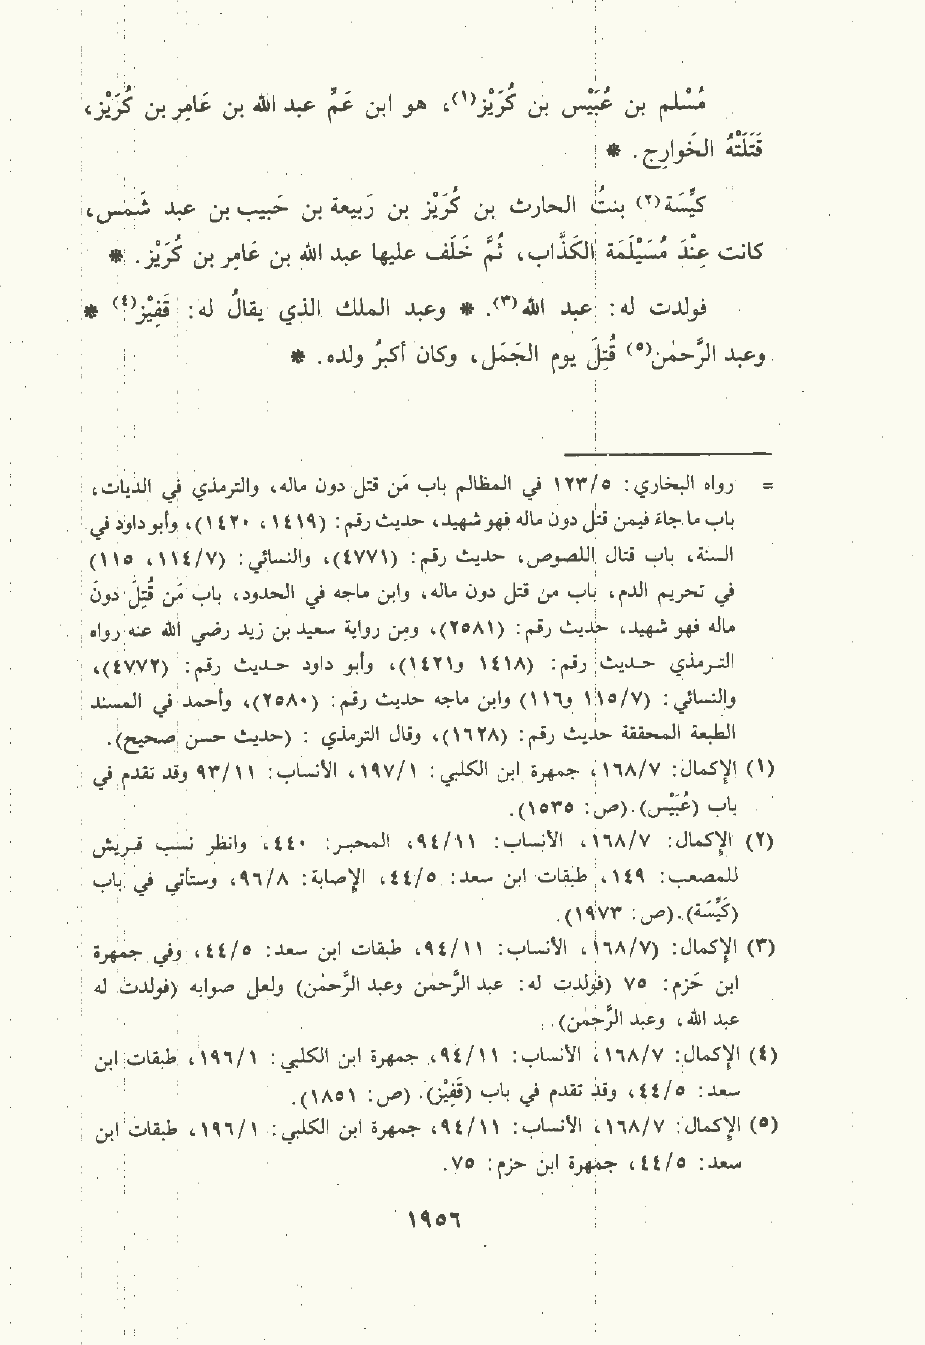 مُسْلم بن عُبَيْس بن كُرَيْز(١)، هو ابن عَمِّ عبد الله بن عَامِر بن كُرَيْز،
قَتَلَتْهُ الخَوارِج. *
كَيِّسَة(٢) بنتُ الحارث بن كُرَيْز بن رَبيعة بن حَبيب بن عبد شَمس،
كانت عِنْدَ مُسَيْلَمَة الكَذَّاب، ثُمَّ خَلَفَ عليها عبد الله بن عَامِر بن كُرَيْز. *
فولدت له: عبد الله(٣). * وعبد الملك الذي يقالُ له: قَفِيْز(٤) *
وعبد الرَّحمٰن(٥) قُتِلَ يوم الجَمَل، وكان أكبرُ ولده. *
= رواه البخاري: ١٢٣/٥ في المظالم باب مَن قتل دون ماله، والترمذي في الديات،
باب ما جاء فيمن قتل دون ماله فهو شهيد، حديث رقم: (١٤١٩، ١٤٢٠)، وأبو داود في
السنة، باب قتال اللصوص، حديث رقم: (٤٧٧١)، والنسائي: (١١٤/٧، ١١٥)
في تحريم الدم، باب من قتل دون ماله، وابن ماجه في الحدود، باب مَن قُتِلَ دونَ
ماله فهو شهيد، حديث رقم: (٢٥٨١)، ومن رواية سعيد بن زيد رضي الله عنه رواه
الترمذي حديث رقم: (١٤١٨ و١٤٢١)، وأبو داود حديث رقم: (٤٧٧٢)،
والنسائي: (١١٥/٧ و١١٦) وابن ماجه حديث رقم: (٢٥٨٠)، وأحمد في المسند
الطبعة المحققة حديث رقم: (١٦٢٨)، وقال الترمذي : (حديث حسن صحيح).
(١) الإكمال: ١٦٨/٧، جمهرة ابن الكلبي: ١٩٧/١، الأنساب: ٩٣/١١ وقد تقدم في
باب (عُبَيْس).(ص: ١٥٣٥).
(٢) الإكمال: ١٦٨/٧، الأنساب: ٩٤/١١، المحبر: ٤٤٠، وانظر نسب قريش
للمصعب: ١٤٩، طبقات ابن سعد: ٤٤/٥، الإصابة: ٩٦/٨، وستأتي في باب
(كَيِّسَة).(ص: ١٩٧٣).
(٣) الإكمال: (١٦٨/٧، الأنساب: ٩٤/١١، طبقات ابن سعد: ٤٤/٥، وفي جمهرة
ابن حَزم: ٧٥ (فولدت له: عبد الرَّحمٰن وعبد الرَّحمٰن) ولعل صوابه (فولدت له
عبد الله، وعبد الرَّحمٰن).
(٤) الإكمال: ١٦٨/٧، الأنساب: ٩٤/١١، جمهرة ابن الكلبي: ١٩٦/١، طبقات ابن
سعد: ٤٤/٥، وقد تقدم في باب (قَفِيْز). (ص: ١٨٥١).
(٥) الإكمال: ١٦٨/٧، الأنساب: ٩٤/١١، جمهرة ابن الكلبي: ١٩٦/١، طبقات ابن
سعد: ٤٤/٥، جمهرة ابن حزم: ٧٥.
١٩٥٦